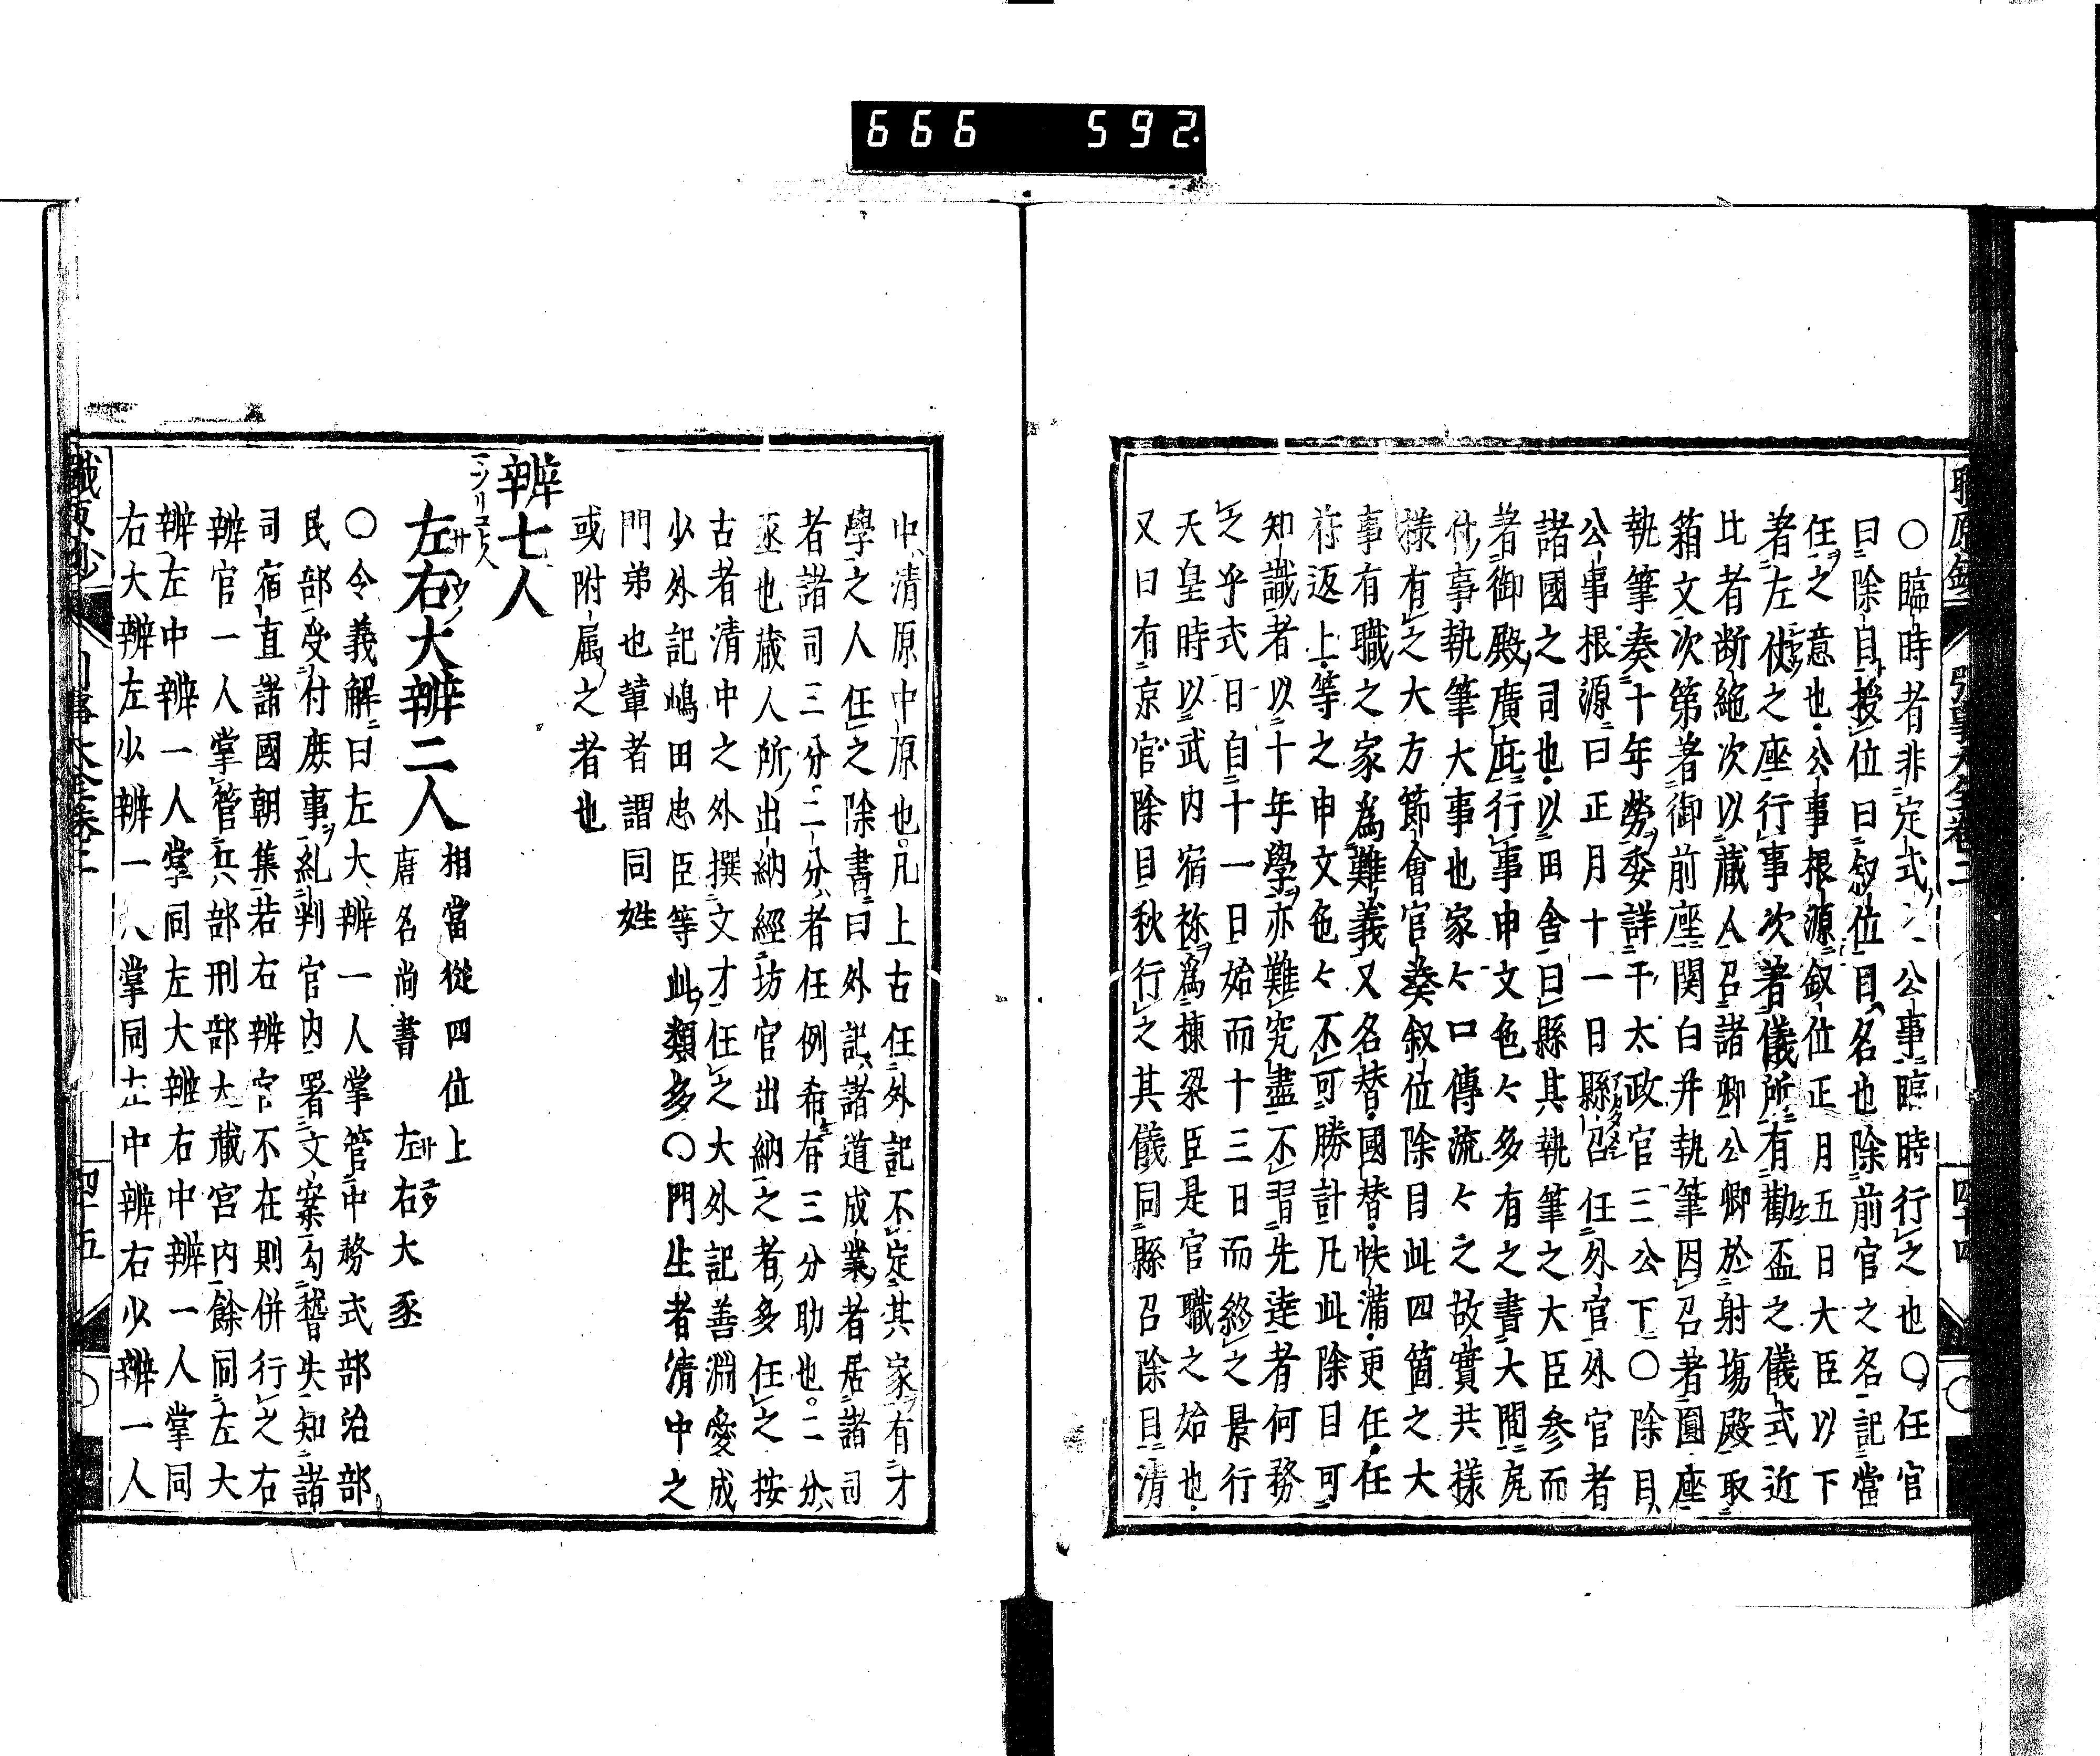 666 592
○臨時者非定式公事臨時行之也○任官
曰除自授位曰叙位目名也除前官之名記當
任之意也公事根源叙位正月五日大臣以下
著左仗之座行事次著儀所有勸盃之儀式近
比者断絶次以蔵人召諸卿公卿於射塲殿取
箱文次第著御前座関白并執筆因召著圓座
執筆奏十年勞委詳干太政官三公下○除目
公事根源曰正月十一日縣召任外官外官者
諸國之司也以田舎曰縣其執筆之大臣参而
著御殿廣庇行事申文色々多有之書大間
什事執筆大事也家々口傳流々之故實共樣
樣有之大方節會官奏叙位除目此四箇之大
事有職之家為難義又名替國替帙満更任任
符返上等之申文色々不可勝計凡此除目可
知識者以十年學亦難究盡不習先達者何務
之乎式日自十一日始而十三日而終之景行
天皇時以武内宿祢為棟梁臣是官職之始也
又曰有京官除目秋行之其儀同縣召除目清
中清原中原也凡上古任外記不定其家有才
學之人任之除書曰外記諸道成業者居諸司
者諸司三分二分者任例希有三分助也二分
丞也蔵人所出納經坊官出納之者多任之按
古者清中之外撰文才任之大外記善淵愛成
少外記嶋田忠臣等此類多○門生者清中之
門弟也輩者謂同姓
或附屬之者也
辨七人
左右大辨二人 相當從四位上
唐名尚書 左右大丞
○令義解曰左大辨一人掌管中務式部治部
民部受付庶事糺判官内署文案勾稽失知諸
司宿直諸國朝集若右辨官不在則併行之右
辨官一人掌管兵部刑部大蔵宮内餘同左大
辨左中辨一人掌同左大辨右中辨一人掌同
右大辨左少辨一人掌同左中辨右少辨一人